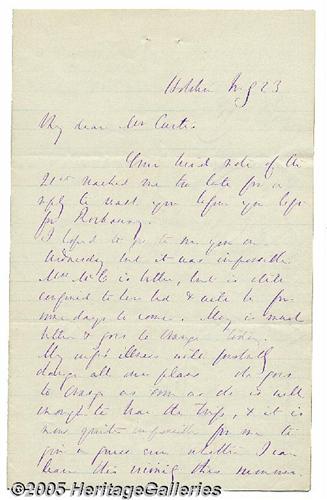 My dear Mr Curtis
Your kind note of the
21st reached me too late for a
reply to reach you before you left
for
I hoped to go to see you on
Wednesday but it was impossible
Mrs Mc C is better, but is still
confined to her bed & will be for
some days to come. May is much
better & goes to today.
My wife's illness will probably
all our plans she goes
to as soon as she is well
enough to bear the trip, & it is
now quite impossible for me to
whether I can
leave this this summer
©2005 HeritageGalleries